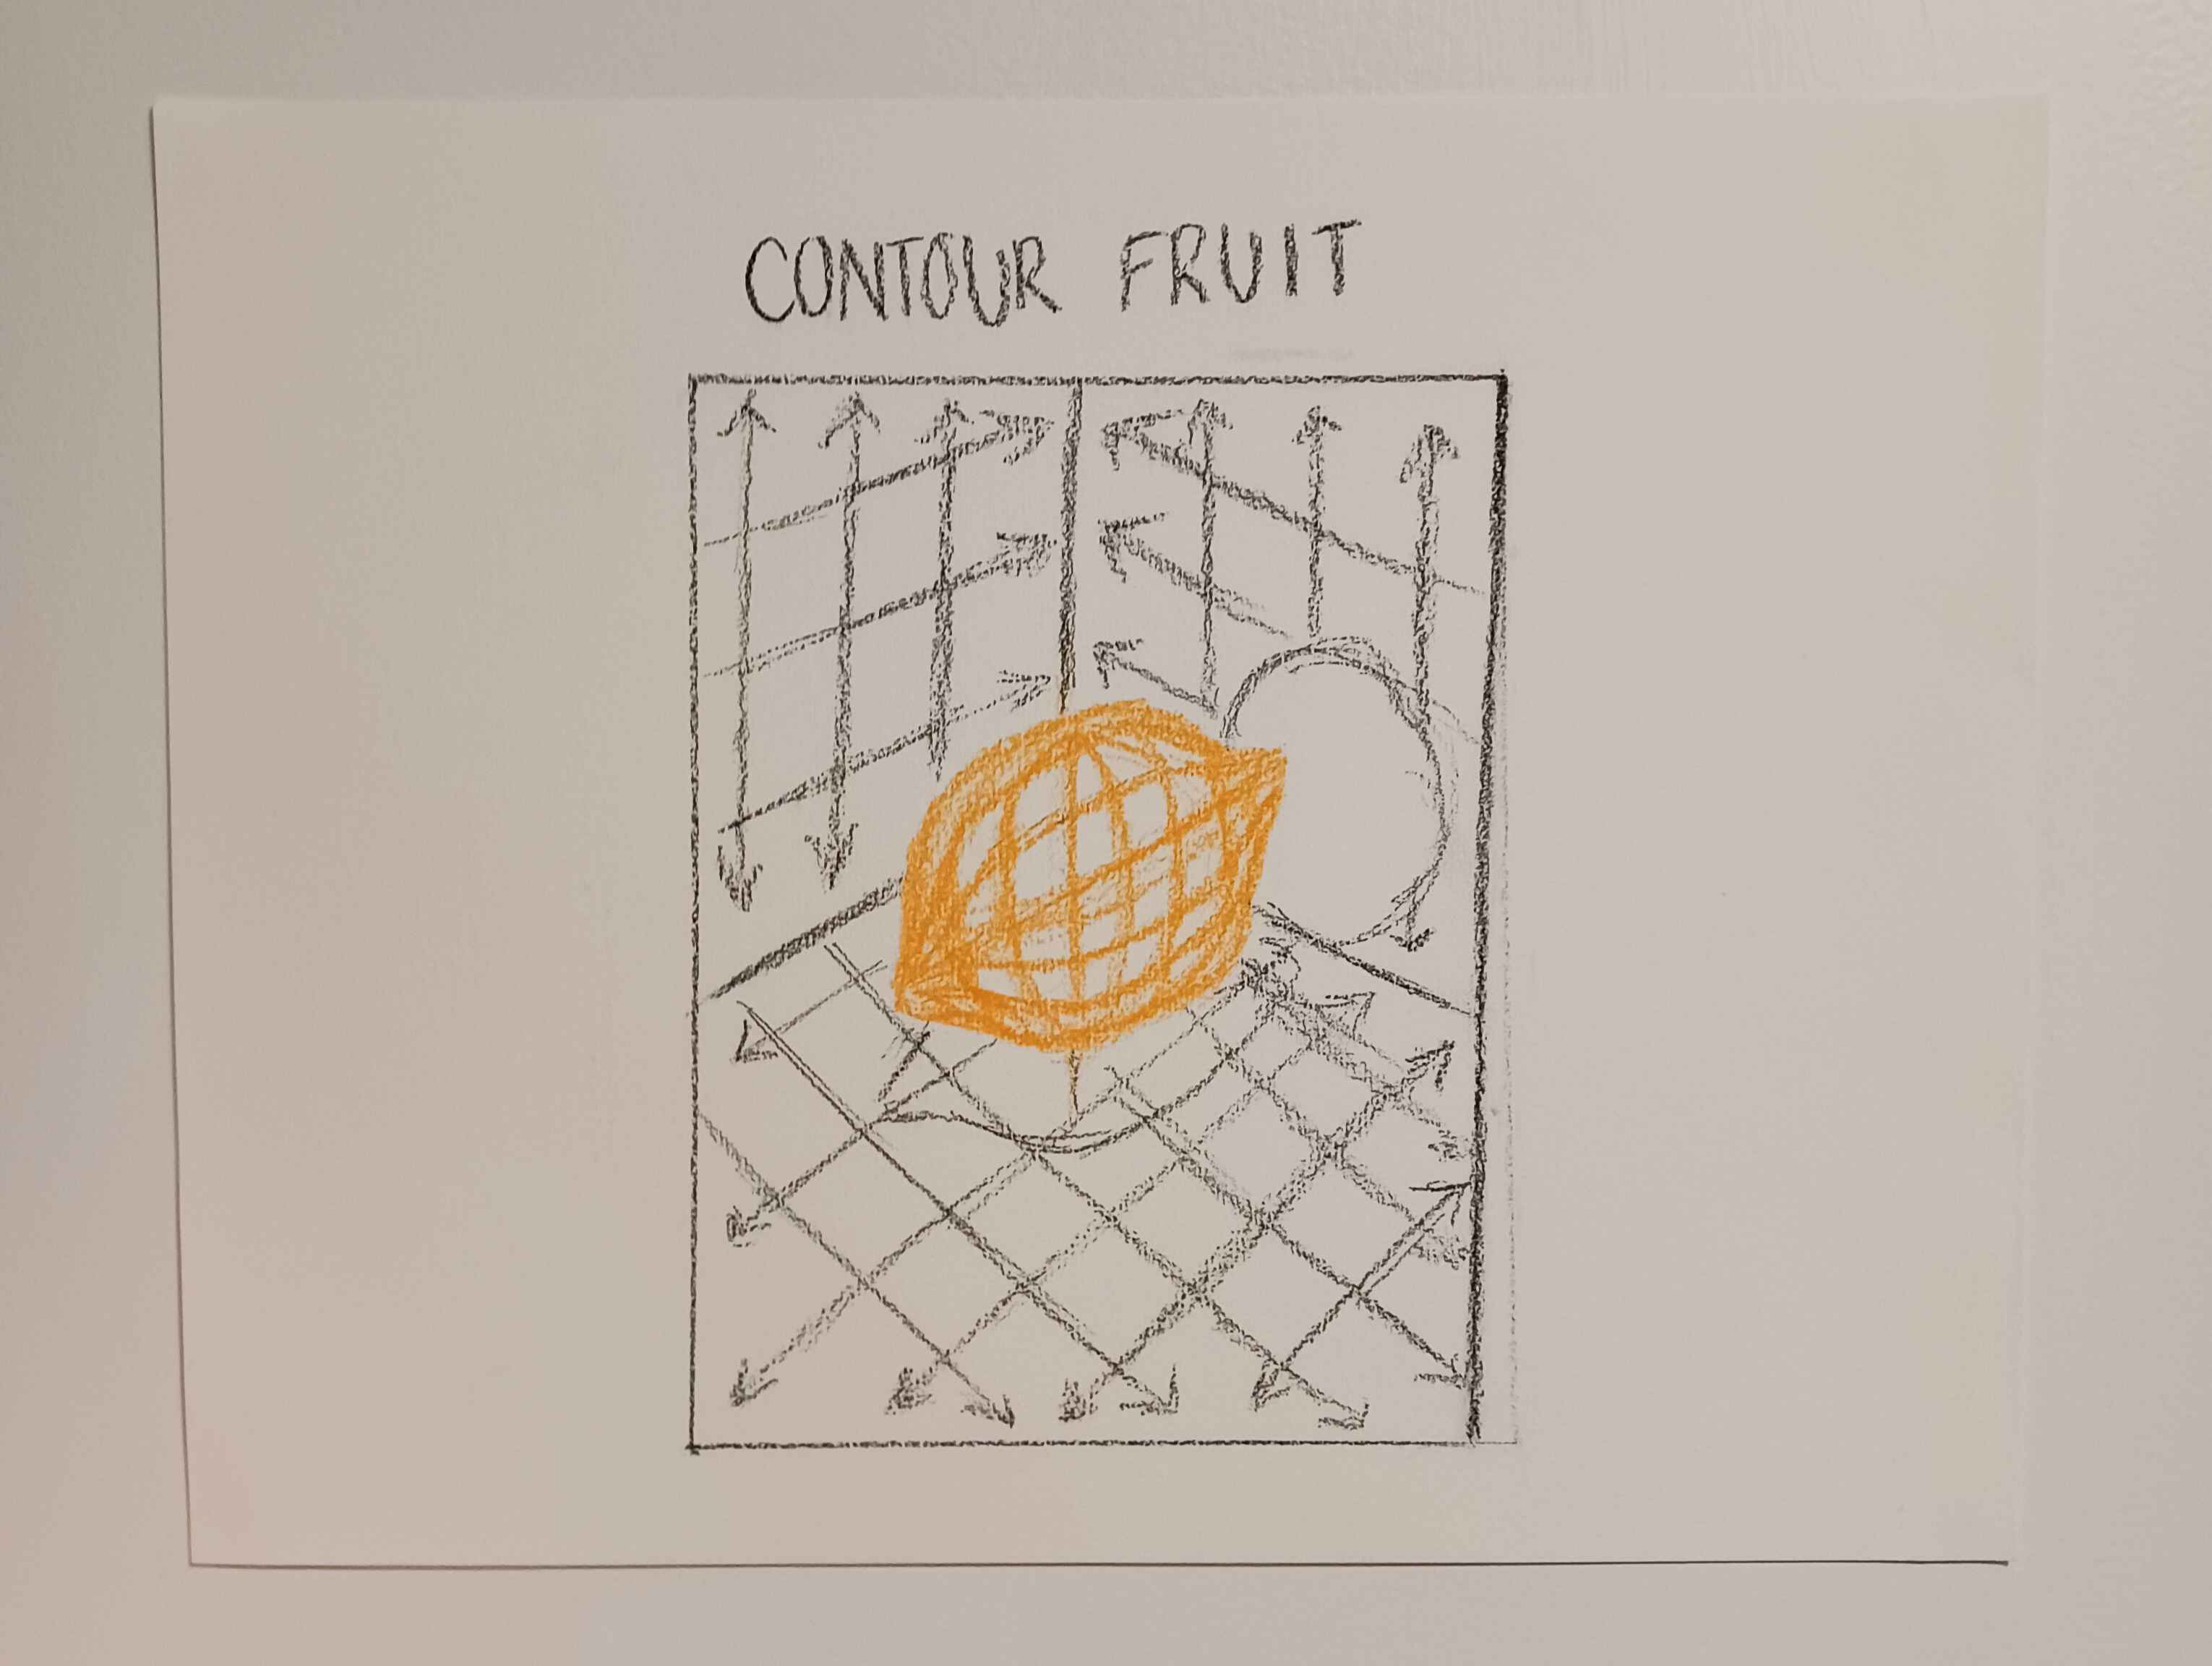 CONTOUR FRUIT